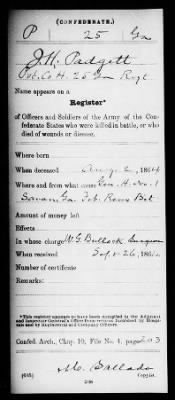 (CONFEDERATE.)
P 25 Ga
J.H. Padgett
Pvt. Co. H. 25 Ga Regt.
Name appears on a
Register*
of Officers and Soldiers of the Army of the Con-
federate States who were killed in battle, or who
died of wounds or disease.
Where born
When deceased Aug. 2, 1864
Where and from what cause Gen. H. No. 1
Savan. Ga. Feb. Rems Bil.
Amount of money left
Effects
In whose charge W G Bullock Surgeon
When received Sept. 26, 186
Number of certificate
Remarks:
*This register appears to have been compiled in the Adjutant
and Inspector General's Office from returns furnished by Hospi-
tals and by Regimental and Company Officers.
Confed. Arch., Chap. 10, File No. 4, page 203
Copyist.